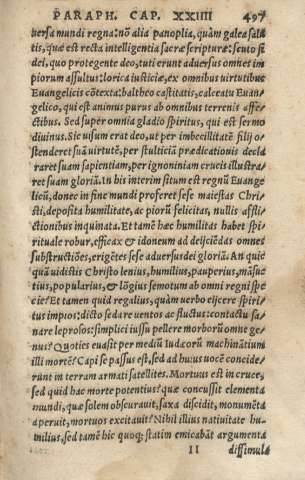 PARAPH. CAP. XXIIII 497
uersa mundi regna: nō alia panoplia, quàm galea salu
tis, quæ est recta intelligentia sacræ scripturæ: scuto fi
dei, quo protegente deo, tuti erunt aduersus omnes im
piorum assultus: lorica iusticiæ, ex omnibus uirtutibus
Euangelicis cōtexta: baltheo castitatis, calceatu Euan-
gelico, qui est animus purus ab omnibus terrenis affe-
ctibus. Sed super omnia gladio spiritus, qui est sermo
diuinus. Sic uisum erat deo, ut per imbecillitatē filij o-
stenderet suā uirtutē, per stulticiā prædicationis decla
raret suam sapientiam, per ignominiam crucis illustra-
ret suam gloriā. In his interim situm est regnū Euange
licū, donec in fine mundi proferet sese maiestas Chri-
sti, deposita humilitate, ac piorū felicitas, nullis afflic-
tionibus inquinata. Et tamē hæc humilitas habet spi-
rituale robur, efficax & idoneum ad deijciēdas omnes
substructiōes, erigētes sese aduersus dei gloriā. An quic
quā uidistis Christo lenius, humilius, pauperius, māsue
tius, popularius, & lōgius semotum ab omni regni spe
cie? Et tamen quid regalius, quàm uerbo eijcere spiri-
tus impios: dicto sedare uentos ac fluctus: contactu sa-
nare leprosos: simplici iussu pellere morborū omne ge
nus? Quoties euasit per mediū Iudæorū machinatium
illi mortē? Capi se passus est, sed ad huius uocē concide-
runt in terram armati satellites. Mortuus est in cruce,
sed quid hac morte potentius? quæ concussit elementa
mundi, quæ solem obscurauit, saxa discidit, monumēta
aperuit, mortuos excitauit? Nihil illius natiuitate hu-
milius, sed tamē hic quoq; statim emicabāt argumenta
II dissimula